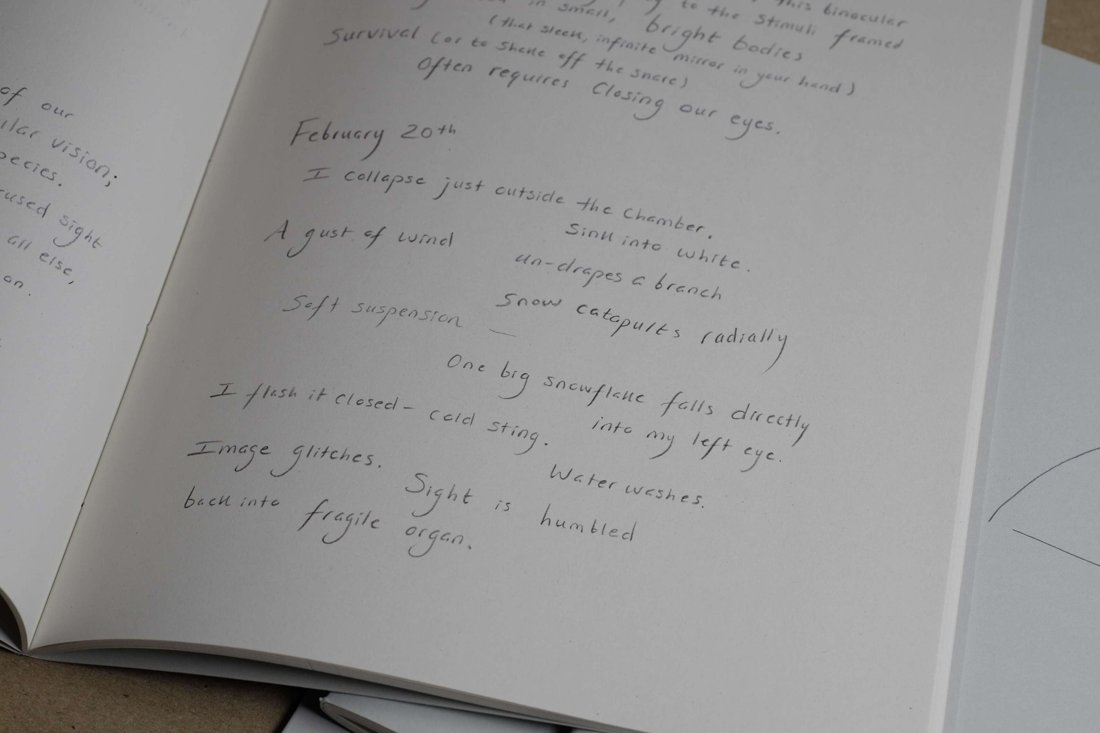 of our
vision;
sight
all else,
this binocular
to the stimuli framed
in small, bright bodies
(that sleek, infinite mirror in your hand)
Survival (or to shake off the snare)
Often requires closing our eyes.
February 20th
I collapse just outside the chamber.
Sink into white.
A gust of wind
un-drapes a branch
Snow catapults radially
Soft suspension —
One big snowflake falls directly
into my left eye.
I flash it closed – cold sting.
Water washes.
Image glitches.
Sight is humbled
back into fragile organ.